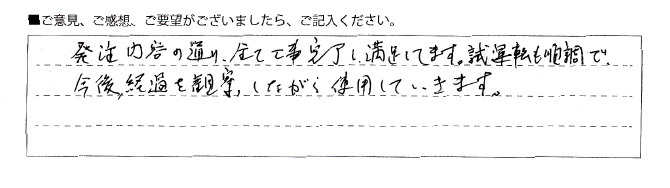 ■ご意見、ご感想、ご要望がございましたら、ご記入ください。
発注内容の通り、全て工事完了し満足してます。試運転も順調で、
今後、経過を観察しながら使用していきます。